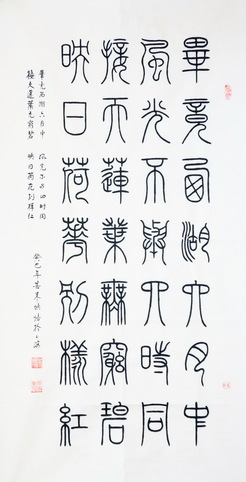 畢竟西湖六月中
風光不與四時同
接天蓮葉無窮碧
映日荷花別樣紅
畢竟西湖六月中 風光不与四时同
接天蓮葉无窮碧 映日荷花別樣紅
癸巳年